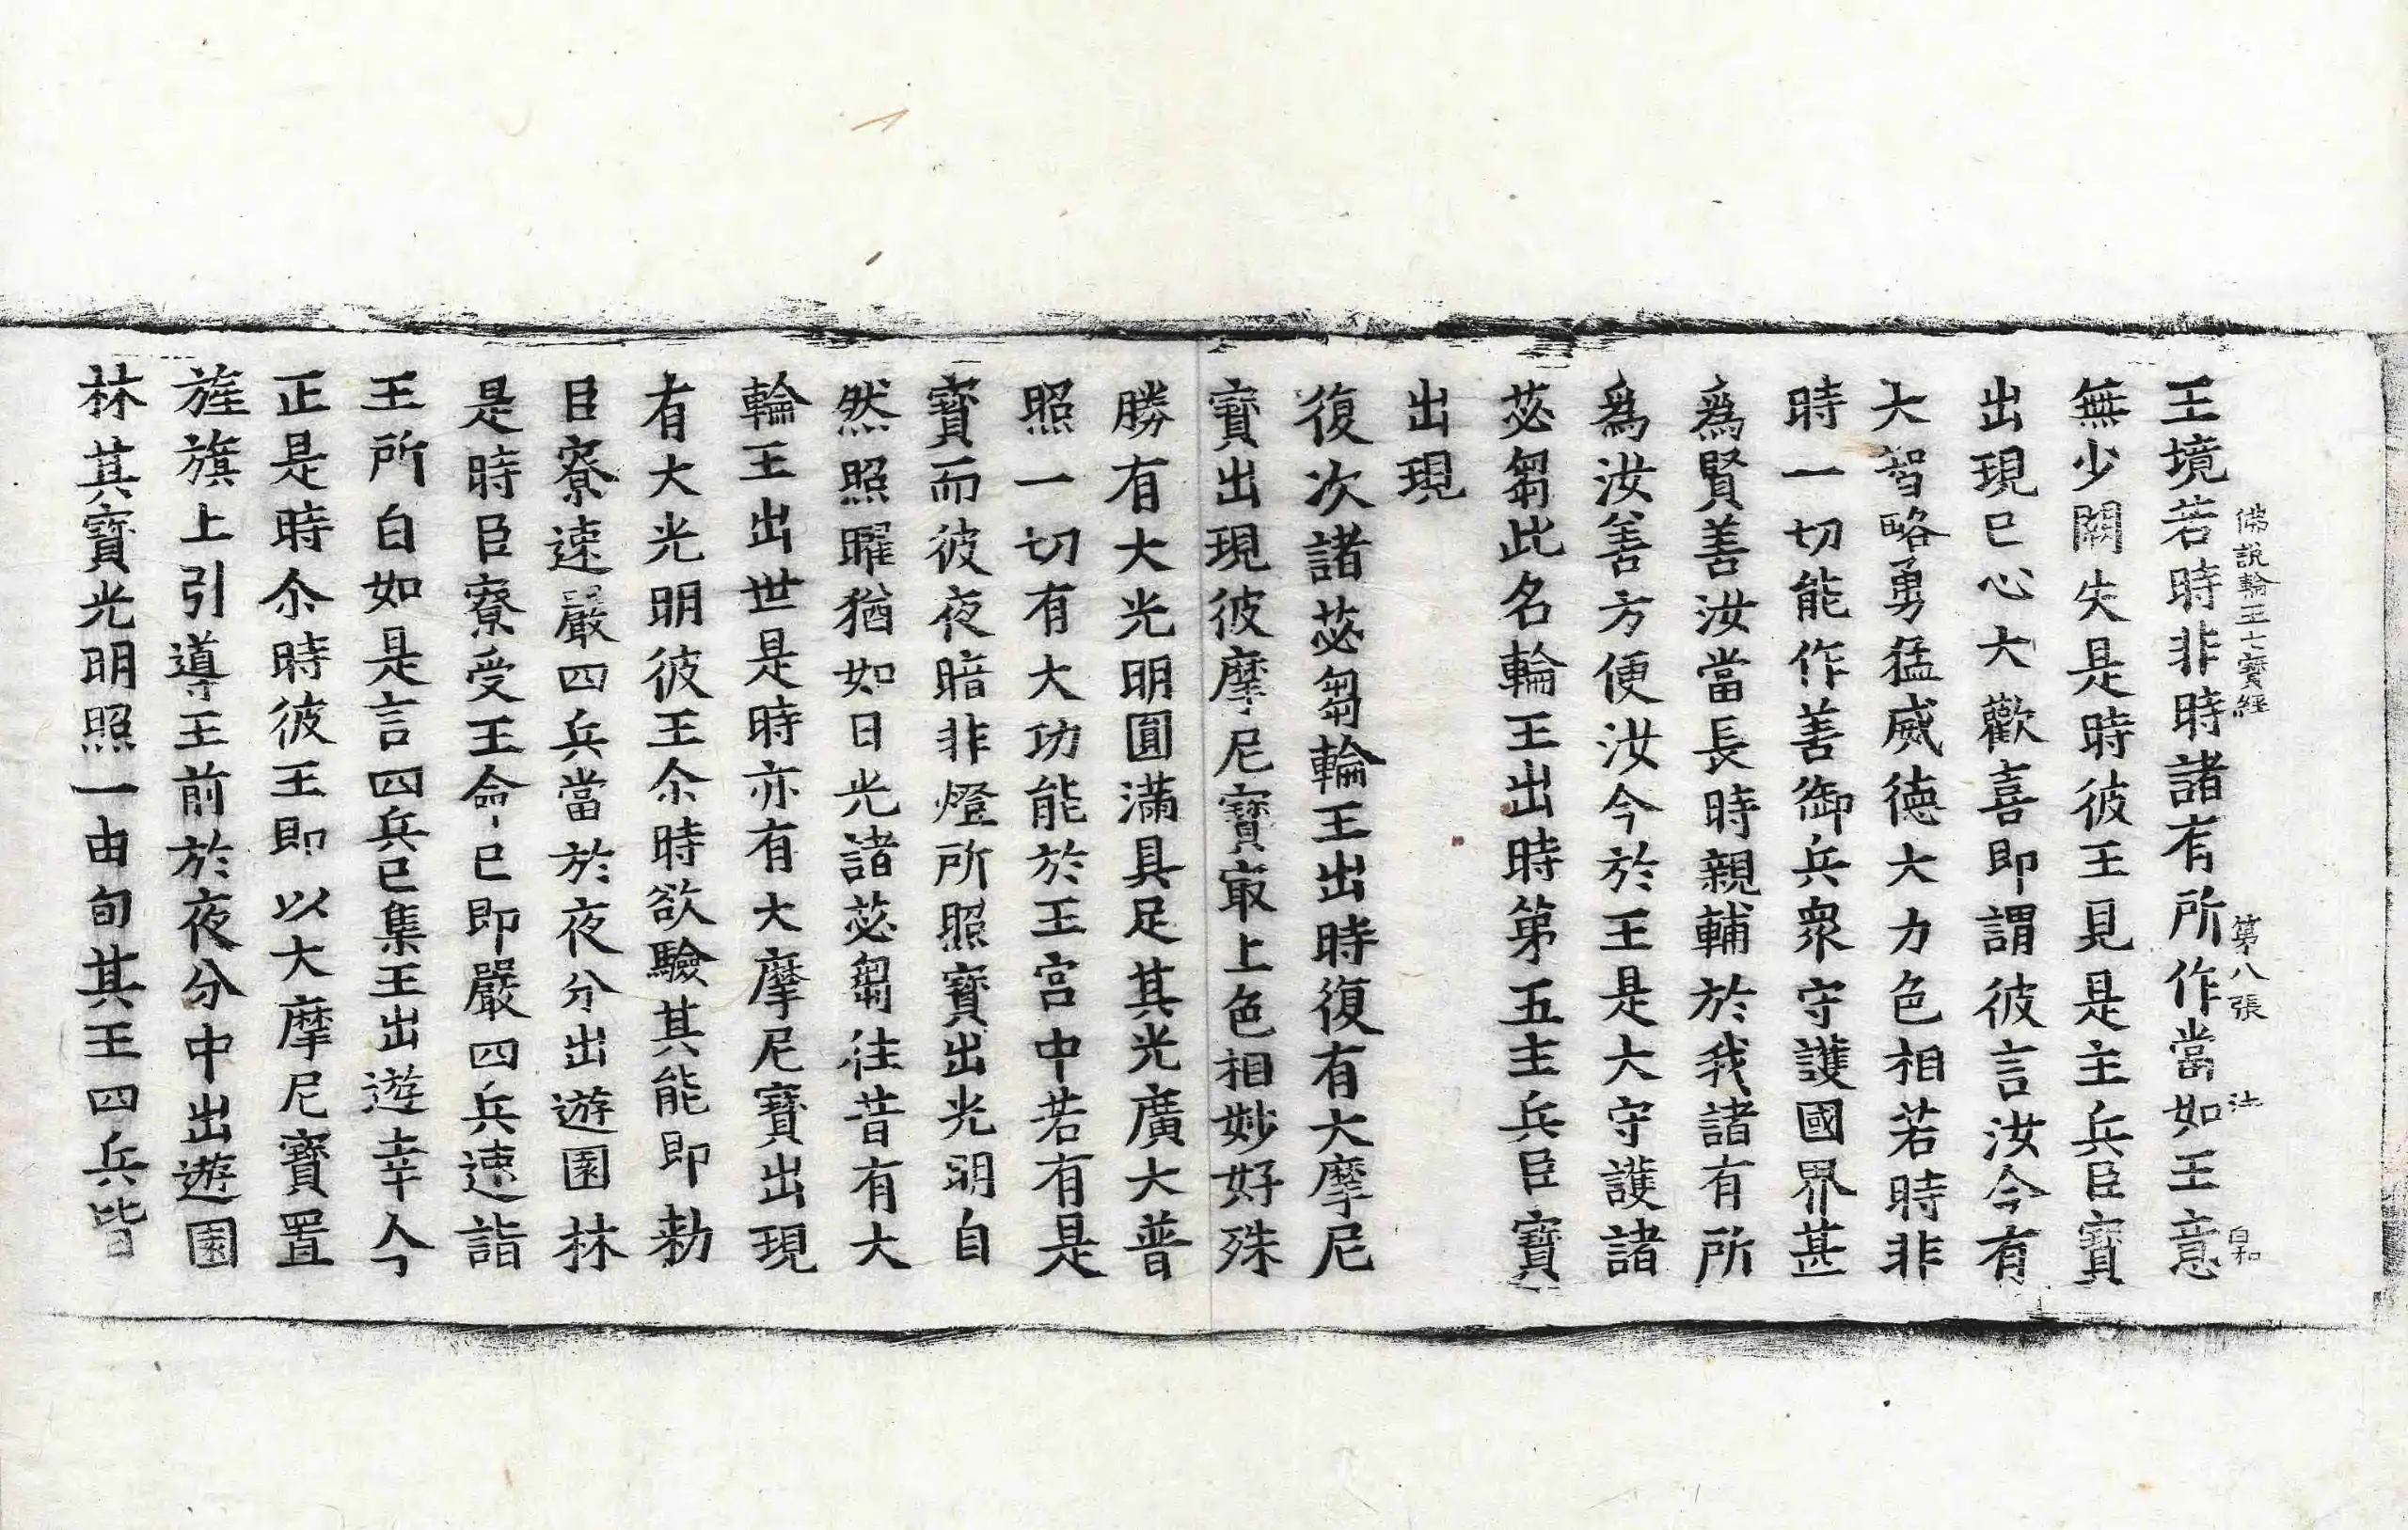 佛說輪王七寶經 第八張 法 白和
王境若時非時諸有所作當如王意
無少闕失是時彼王見是主兵臣寶
出現已心大歡喜即謂彼言汝今有
大智略勇猛威德大力色相若時非
時一切能作善御兵衆守護國界甚
爲賢善汝當長時親輔於我諸有所
爲汝善方便汝今於王是大守護諸
苾芻此名輪王出時第五主兵臣寶
出現
復次諸苾芻輪王出時復有大摩尼
寶出現彼摩尼寶㝡上色相妙好殊
勝有大光明圓滿具足其光廣大普
照一切有大功能於王宮中若有是
寶而彼夜暗非燈所照寶出光明自
然照曜猶如日光諸苾芻往昔有大
輪王出世是時亦有大摩尼寶出現
有大光明彼王尒時欲驗其能即勑
臣寮速嚴四兵當於夜分出遊園林
是時臣寮受王命已即嚴四兵速詣
王所白如是言四兵已集王出遊幸今
正是時尒時彼王即以大摩尼寶置
旌旗上引導王前於夜分中出遊園
林其寶光明照一由旬其王四兵皆